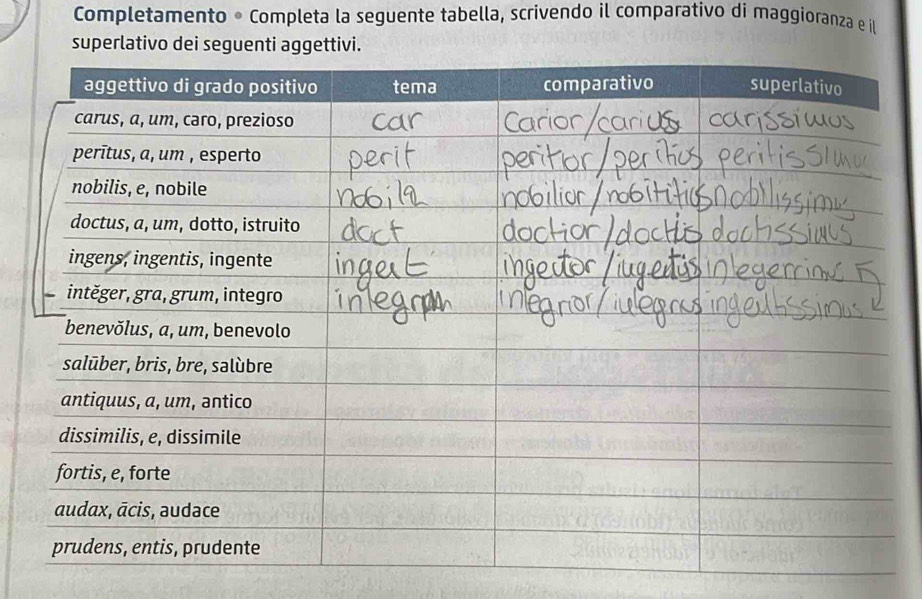 Completamento • Completa la seguente tabella, scrivendo il comparativo di maggioranza e il
superlativo dei seguenti aggettivi.
aggettivo di grado positivo tema comparativo superlativo
carus, a, um, caro, prezioso car carior/carius carissimus
perītus, a, um , esperto perit peritior/peritius peritissimus
nobilis, e, nobile nobil nobilior/ nobilissimus
doctus, a, um, dotto, istruito doct doctior/doctis doctissimus
ingens, ingentis, ingente ingent
intĕger, gra, grum, integro integr integrior/ ingentissimus
benevŏlus, a, um, benevolo
salūber, bris, bre, salùbre
antiquus, a, um, antico
dissimilis, e, dissimile
fortis, e, forte
audax, ācis, audace
prudens, entis, prudente